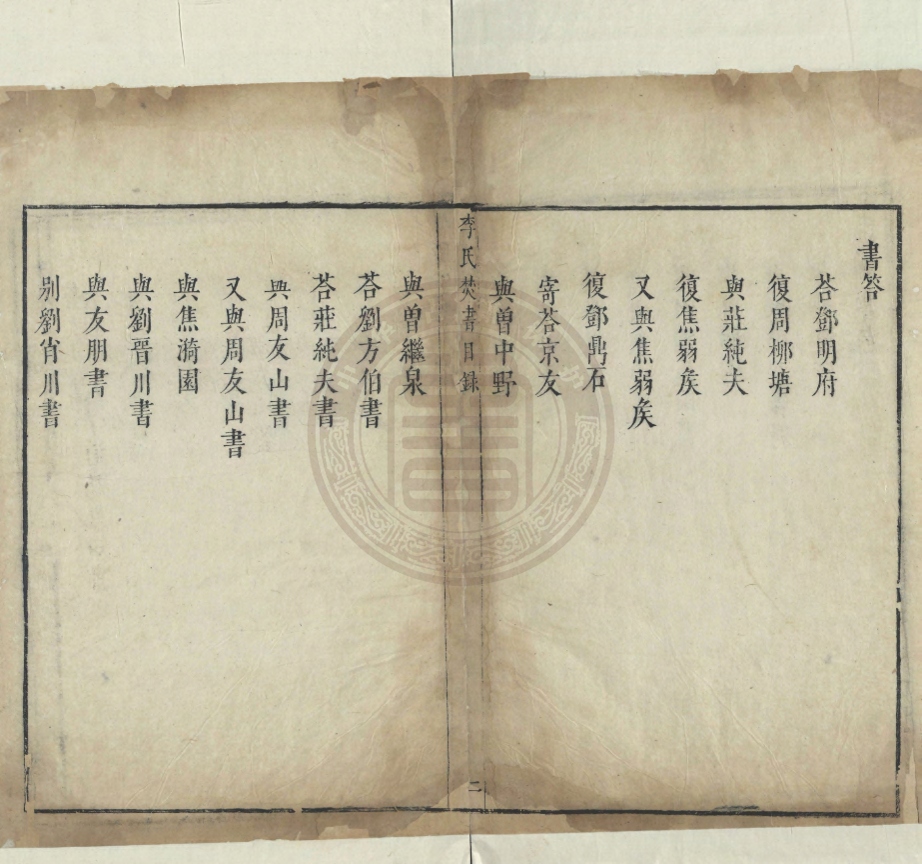 書答
荅鄧明府
復周柳塘
與莊純夫
復焦弱矦
又與焦弱矦
復鄧鼎石
寄荅京友
與曾中野
李氏焚書目錄
二
與曾繼泉
荅劉方伯書
荅莊純夫書
與周友山書
又與周友山書
與焦漪園
與劉晋川書
與友朋書
別劉肖川書